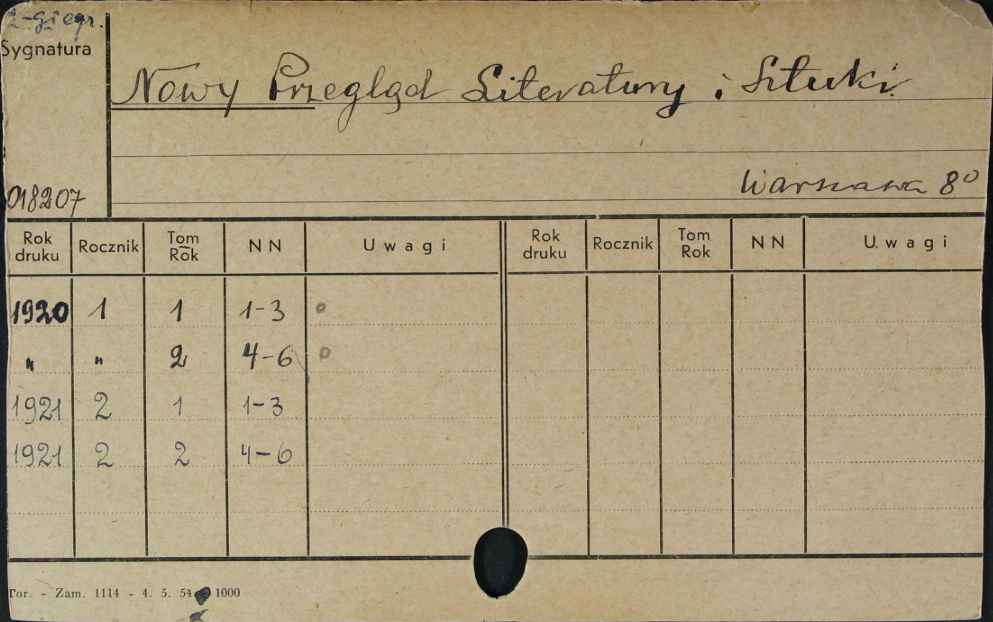 2-gi egz.
Sygnatura
Nowy Przegląd Literatury i Sztuki.
018207
Warszawa 8º
Rok druku Rocznik Tom Rok NN Uwagi Rok druku Rocznik Tom Rok NN Uwagi
1920 1 1 1-3 o
" " 2 4-6 o
1921 2 1 1-3
1921 2 2 4-6
Tor. - Zam. 1114 - 4. 5. 54 1000